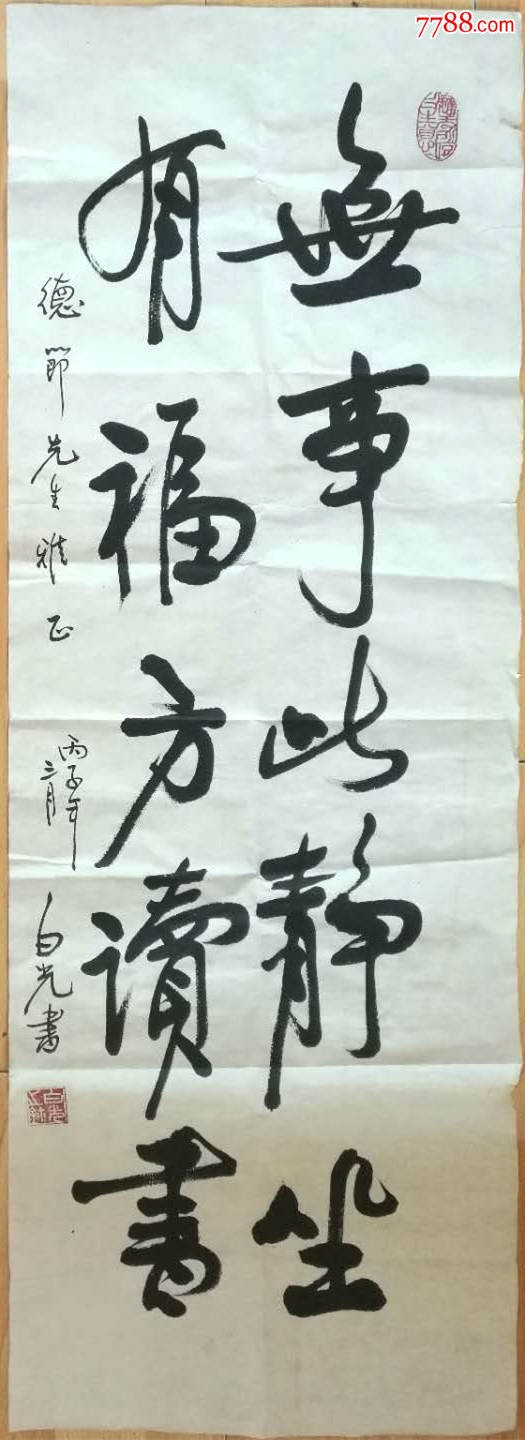 7788.com
無事此静坐
有福方讀書
德節先生雅正
丙子年
三月
白光書